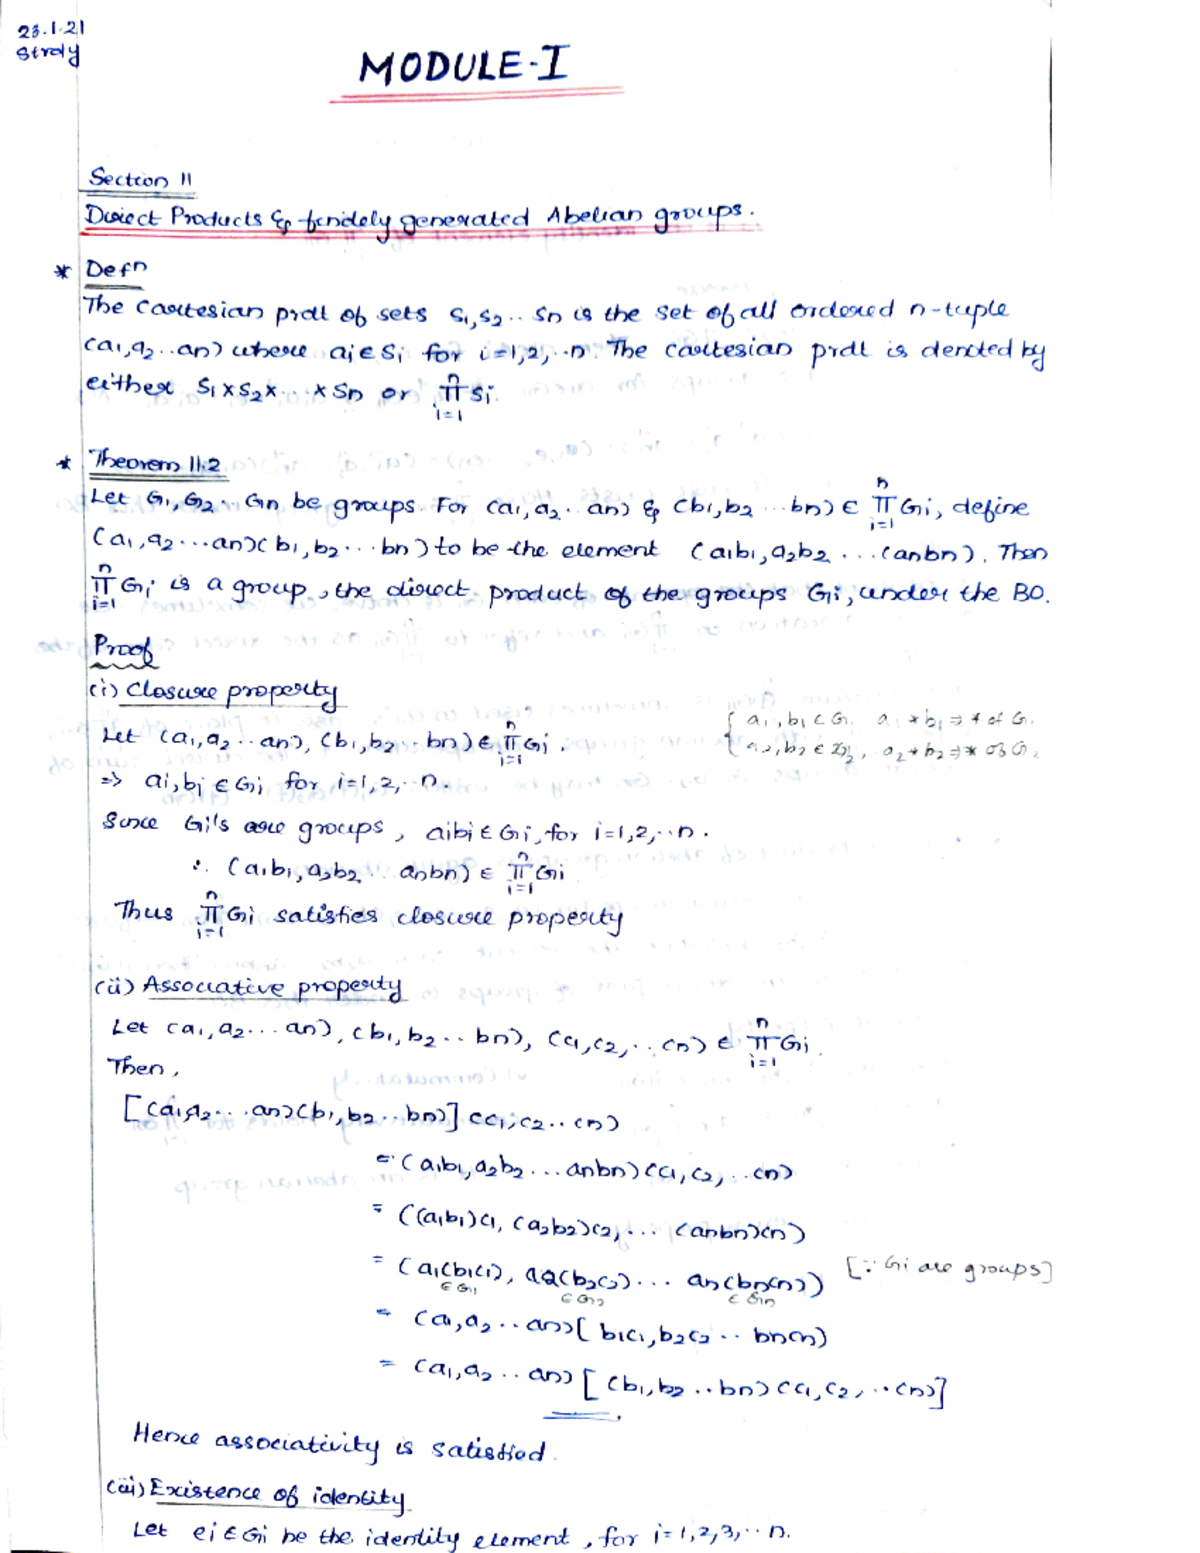 23.1.21
MODULE-I
Section 11
Direct Products & finitely generated Abelian groups.
* Defn
The Cartesian prdt of sets S1,S2.. Sn is the set of all ordered n-tuple
(a1,a2..an) where ai∈Si for i=1,2,..n. The cartesian prdt is denoted by
either S1×S2×...×Sn or n∏i=1 Si.
* Theorem 11.2
Let G1,G2.. Gn be groups. For (a1,a2.. an) & (b1,b2...bn) ∈ n∏i=1 Gi, define
(a1,a2...an)(b1,b2...bn) to be the element (a1b1,a2b2...(anbn). Then
n∏i=1 Gi is a group, the direct product of the groups Gi, under the BO.
Proof
(i) Closure property
Let (a1,a2..an), (b1,b2..bn) ∈ n∏i=1 Gi
{ a1,b1 ∈ G1 a1*b1 ⇒ * of G1
a2,b2 ∈ G2, a2*b2 ⇒ * of G2
⇒ ai,bi ∈ Gi for i=1,2,..n.
Since Gi's are groups, aibi ∈ Gi, for i=1,2,..n.
∴ (a1b1,a2b2.. anbn) ∈ n∏i=1 Gi
Thus n∏i=1 Gi satisfies closure property
(ii) Associative property
Let (a1,a2...an), (b1,b2..bn), (c1,c2,..cn) ∈ n∏i=1 Gi.
Then,
[(a1,a2...an)(b1,b2..bn)] (c1,c2..cn)
= (a1b1,a2b2...anbn)(c1,c2,..cn)
= ((a1b1)c1,(a2b2)c2,...(anbn)cn)
= (a1(b1c1), a2(b2c2)... an(bncn)) [∵ Gi are groups]
∈G1 ∈G2 ∈Gn
= (a1,a2..an)[b1c1,b2c2..bncn)
= (a1,a2..an)[(b1,b2..bn)(c1,c2,..cn)]
Hence associativity is satisfied.
(iii) Existence of identity
Let ei∈Gi be the identity element, for i=1,2,3,..n.